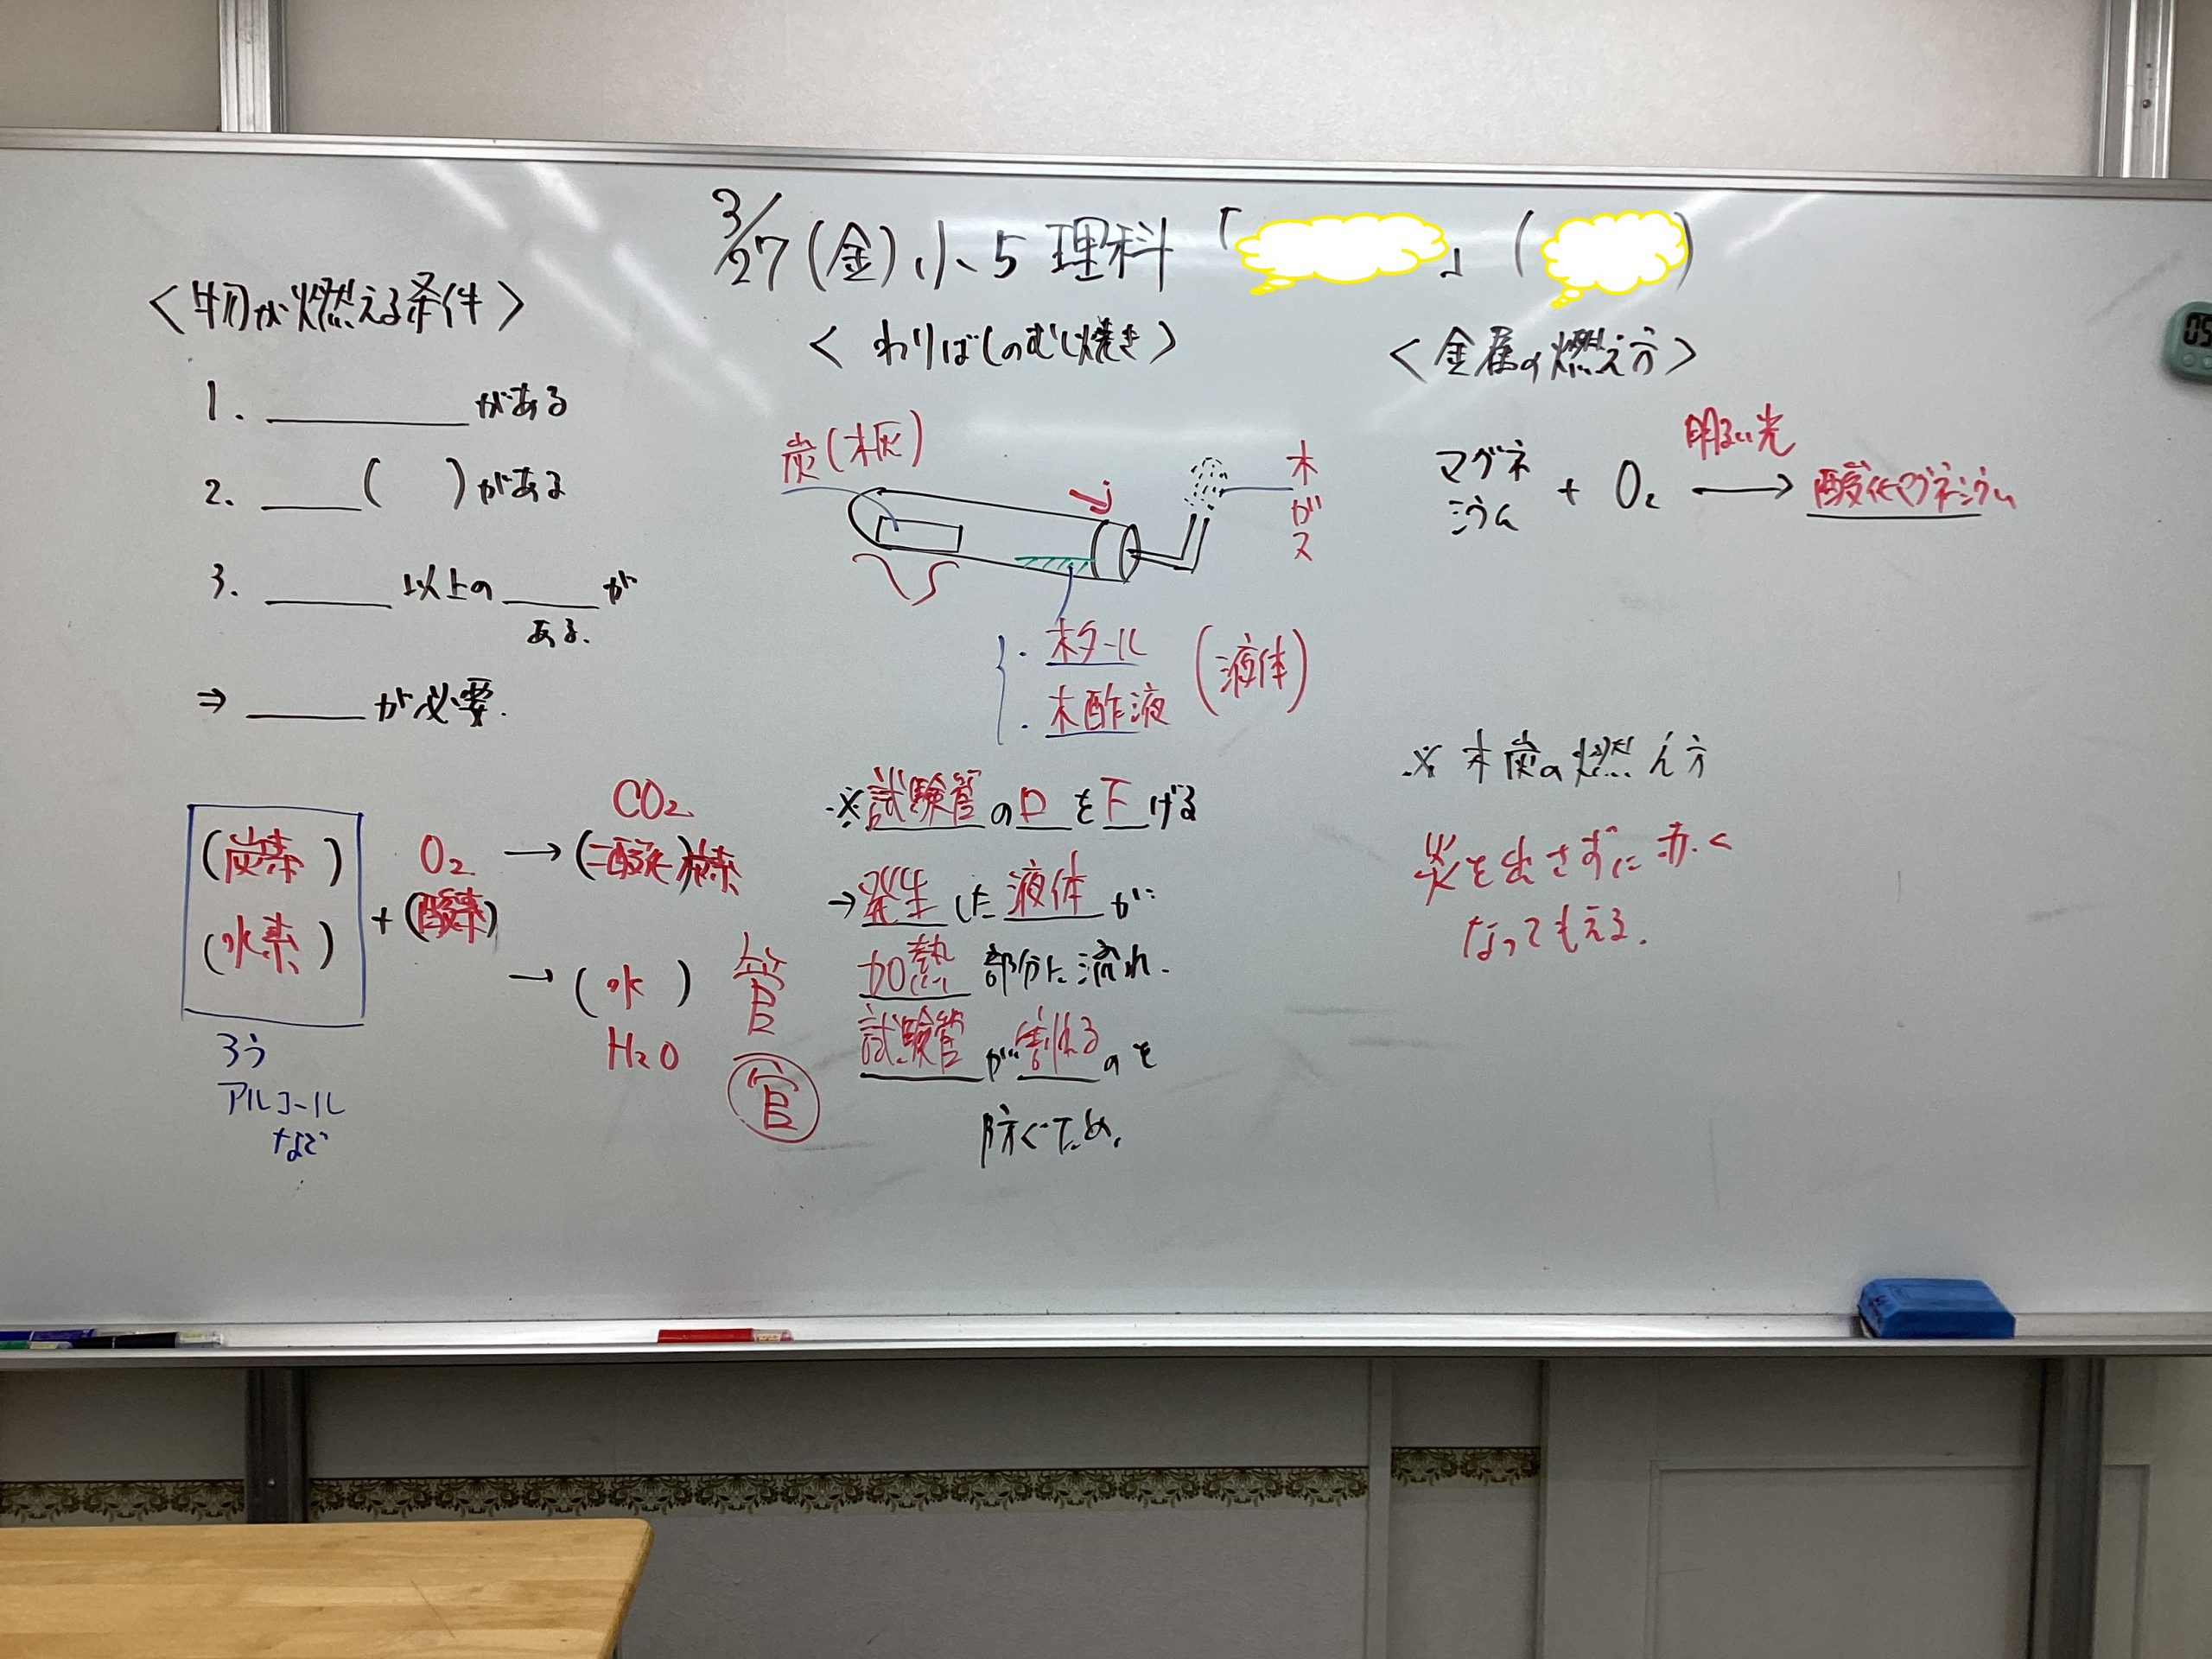 3/27(金)小5 理科「 」( )
<物が燃える条件>
1. ＿＿＿＿がある
2. ＿＿( )がある
3. ＿＿＿以上の＿＿が
ある.
⇒ ＿＿＿が必要.
(炭素)
(水素)
+
O₂
(酸素)
→
CO₂
(二酸化)炭素
→ (水)
H₂O
ろう
アルコール
など
管
官
<わりばしのむし焼き>
炭(木炭)
木ガス
・木タール
・木酢液
(液体)
※試験管の口を下げる
→発生した液体が
加熱部分に流れ.
試験管が割れるのを
防ぐため.
<金属の燃え方>
マグネ
シウム
+ O₂
明るい光
→
酸化マグネシウム
※木炭の燃え方
炎を出さずに赤く
なってもえる.
05